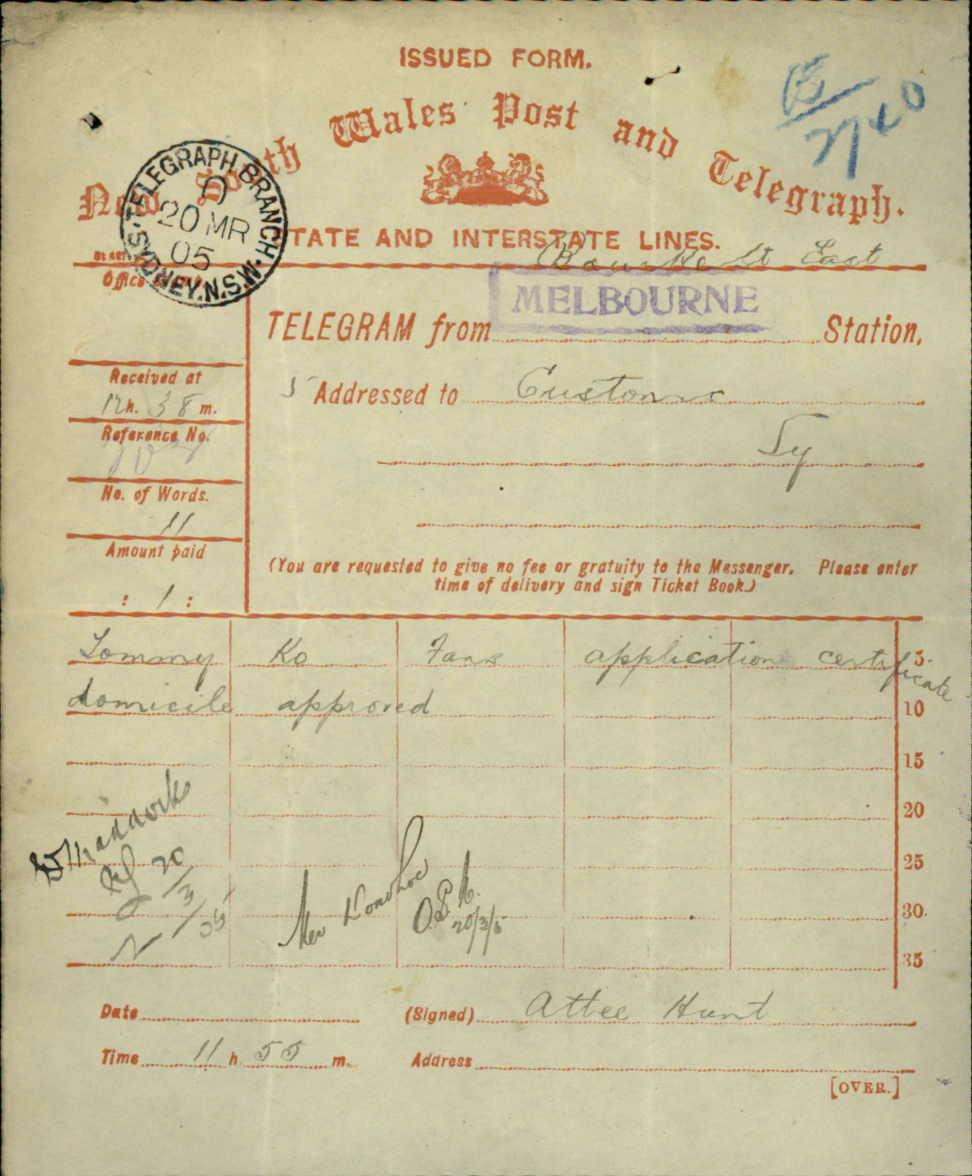 ISSUED FORM.
B/
2740
New South Wales Post and Telegraph.
TELEGRAPH BRANCH
20 MR
05
SYDNEY. N.S.W.
STATE AND INTERSTATE LINES.
Bourke St East
Office
MELBOURNE
TELEGRAM from Station.
Received at
12 h. 38 m.
5 Addressed to Customs
Reference No.
Sy
No. of Words.
11
Amount paid
: 1 :
(You are requested to give no fee or gratuity to the Messenger. Please enter
time of delivery and sign Ticket Book.)
Tommy Ko Fans application certificate 5
domicile approved 10
15
20
25
30
35
20/3/05
Mr Donohoe
20/3/5
Date (Signed) Attee Hunt
Time 11 h 55 m. Address
[OVER.]